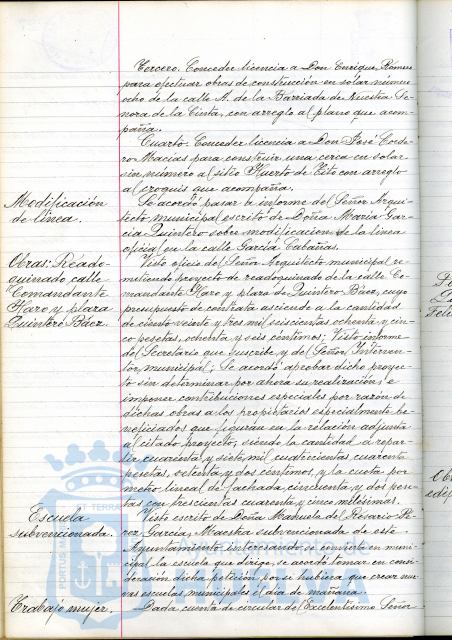 Tercero. Conceder licencia a Don Enrique Romero
para efectuar obras de construcción en solar número
ocho de la calle A. de la Barriada de Nuestra Se-
ñora de la Cinta, con arreglo al plano que acom-
paña.
Cuarto. Conceder licencia a Don José Corde-
ro Macias para construir una cerca en solar
sin número al sitio Huerto de Tito con arreglo
al croquis que acompaña.
Modificación
de línea.
Se acordó pasar a informe del Señor Arqui-
tecto municipal escrito de Doña María Gar-
cía Quintero sobre modificación de la línea
oficial en la calle García Cabañas.
Obras: Réado-
quinado calle
Comandante
Haro y plaza
Quintero Báez
Visto oficio del Señor Arquitecto municipal re-
mitiendo proyecto de readoquinado de la calle Co-
mandante Haro y plaza de Quintero Báez, cuyo
presupuesto de contrata asciende a la cantidad
de ciento veinte y tres mil seiscientas ochenta y cin-
co pesetas, ochenta y seis céntimos; Visto informe
del Secretario que suscribe y del Señor Interven-
tor municipal; Se acordó aprobar dicho proyec-
to sin determinar por ahora su realización e
imponer contribuciones especiales por razón de
dichas obras a los propietarios especialmente be-
neficiados que figuran en la relación adjunta
al citado proyecto, siendo la cantidad a repar-
tir cuarenta y siete mil cuatrocientas cuarenta
pesetas, setenta y dos céntimos, y la cuota por
metro lineal de fachada, cincuenta y dos pese-
tas con trescientas cuarenta y cinco milésimas.
Escuela
subvencionada.
Visto escrito de Doña Manuela del Rosario Pé-
rez García, Maestra subvencionada de este
Ayuntamiento interesando se convierta en muni-
cipal la escuela que dirige, se acordó tomar en consi-
deración dicha petición por si hubiera que crear nue-
vas escuelas municipales el día de mañana.
Trabajo mujer.
Dada cuenta de circular del Excelentísimo Señor